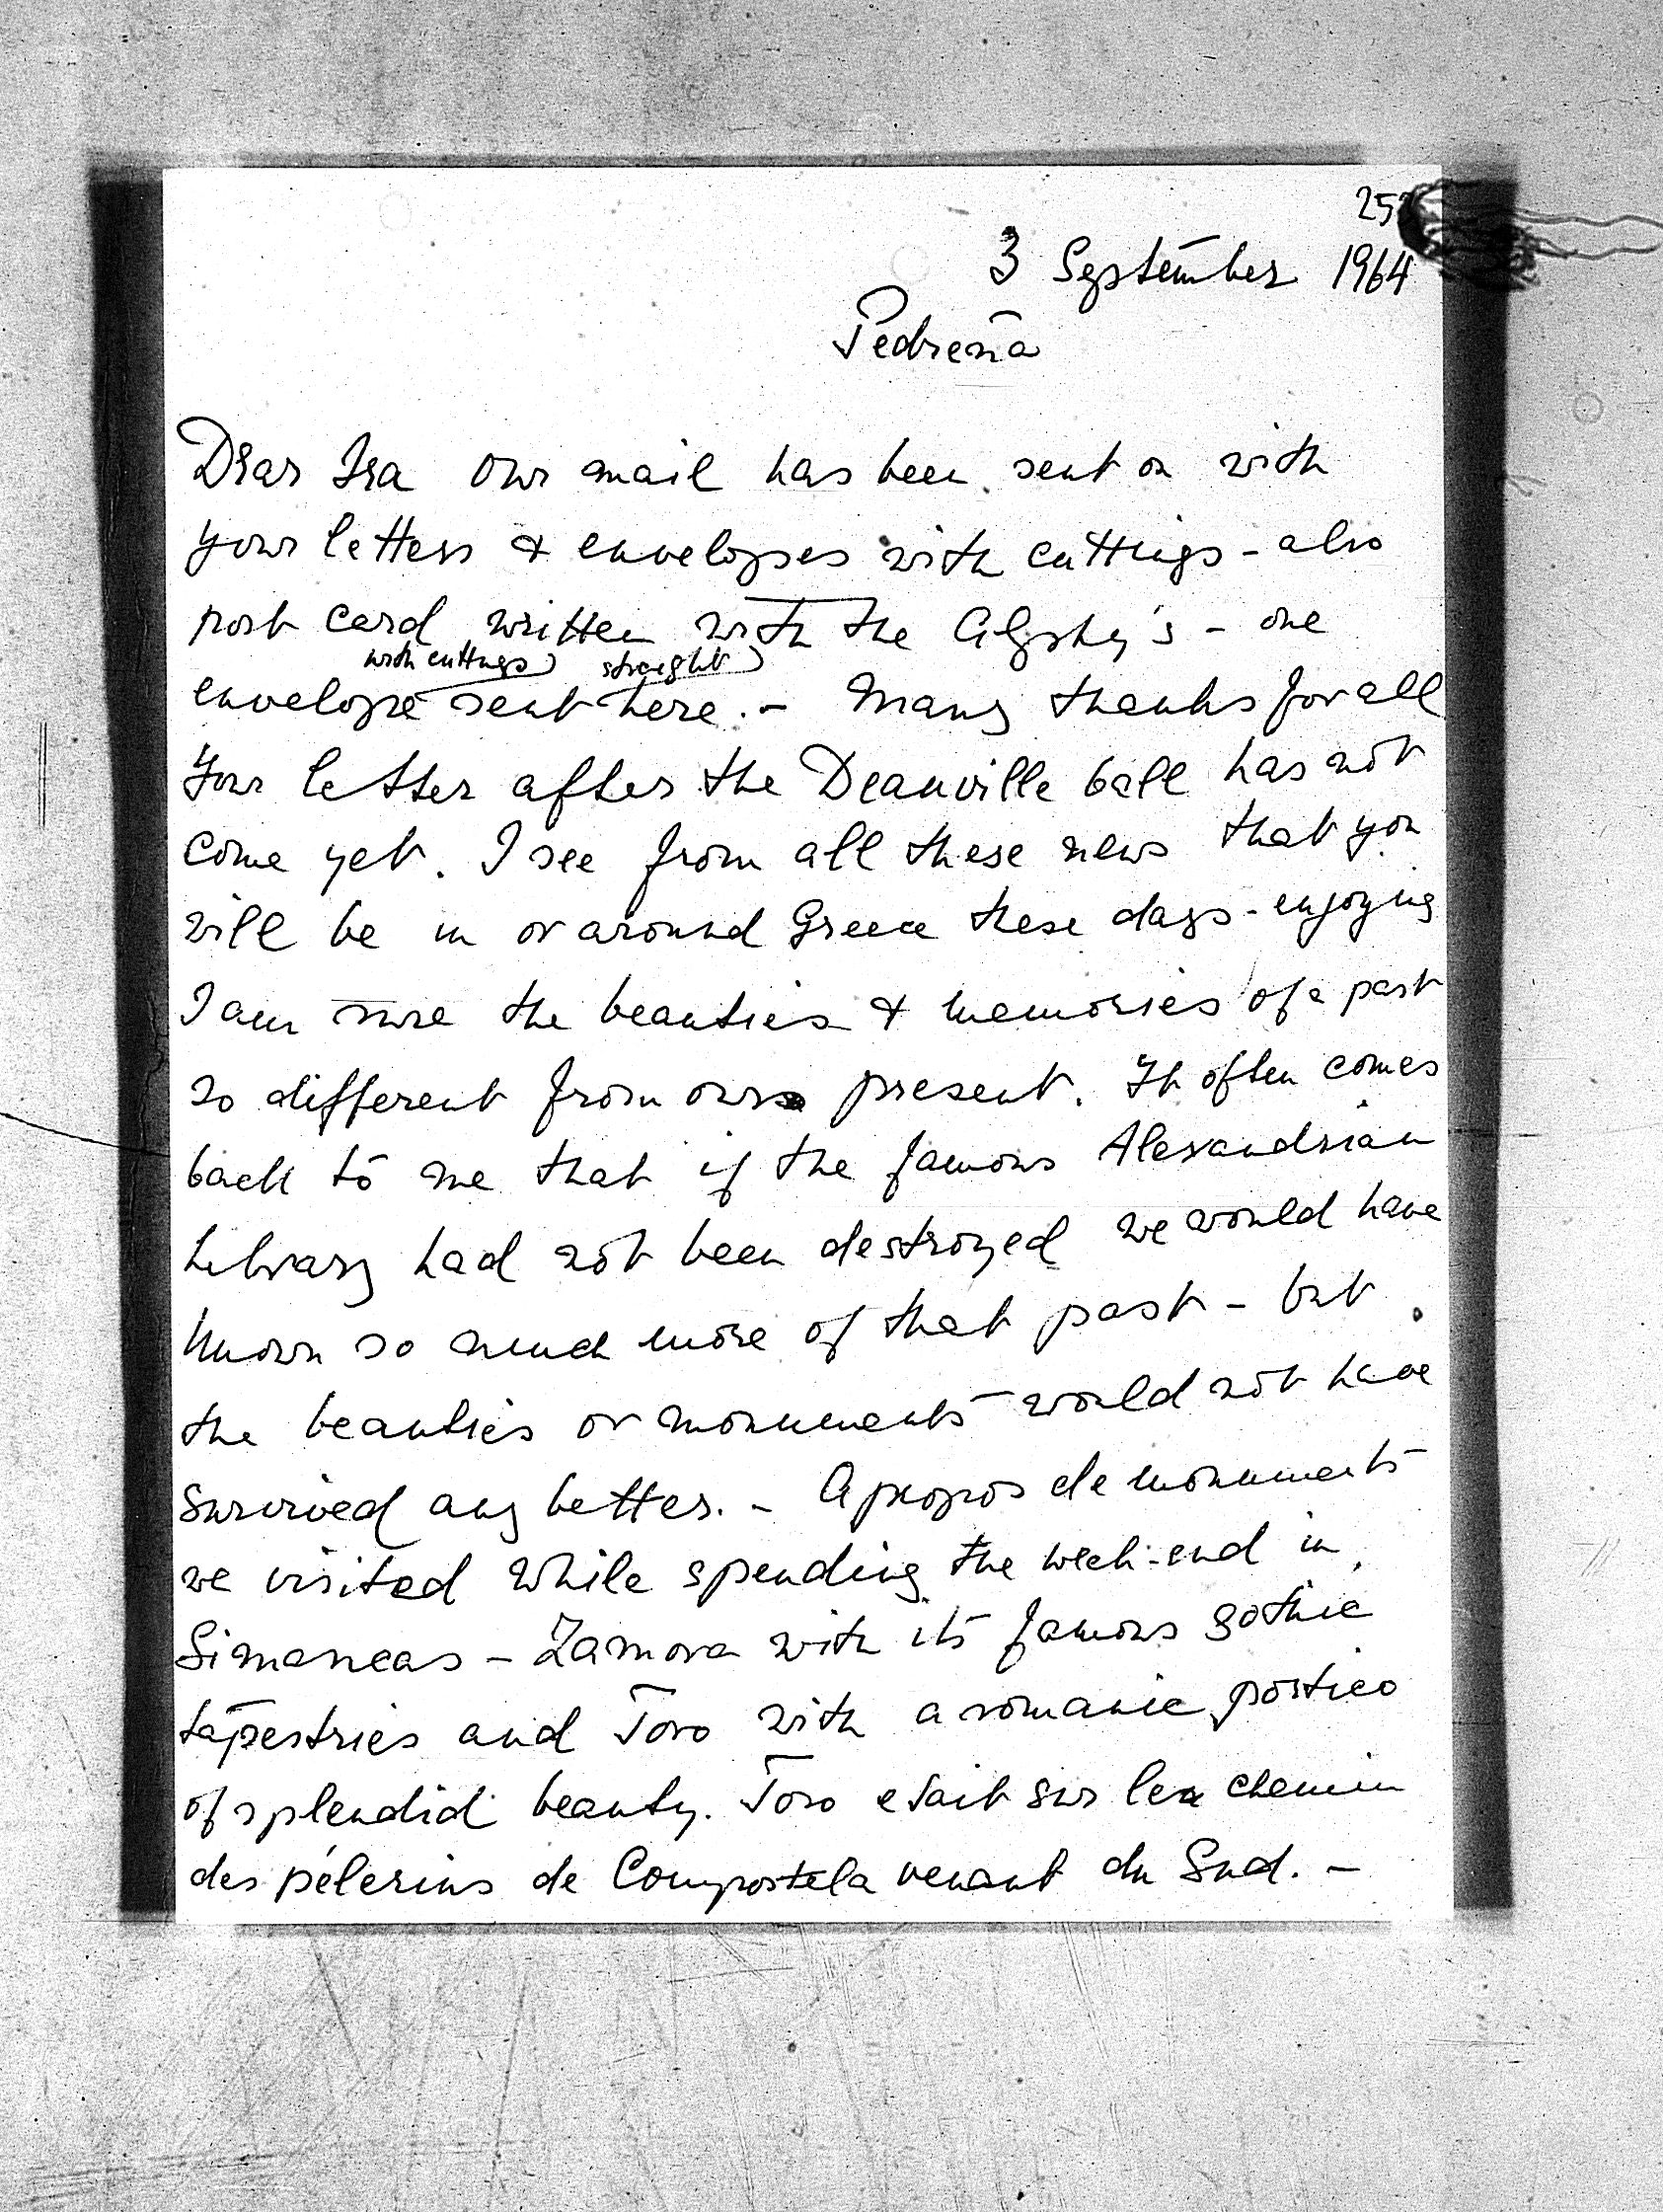 3 September 1964
Pedreña
Dear Ira Our mail has been sent on with
your letters & envelopes with cuttings - also
post card written with the - one
with cuttings) straight)
envelope sent here. - Many thanks for all
Your letter after the Deauville ball has not
come yet. I see from all these news that you
will be in or around Greece these days - enjoying
I am sure the beauties & memories of a past
so different from our present. It often comes
back to me that if the famous Alexandrian
Library had not been destroyed we would have
known so much more of that past - but
the beauties or monuments would not have
survived any better. - Apropos de monuments
we visited while spending the week-end in
Simancas - Zamora with its famous gothic
tapestries and Toro with a romanic portico
of splendid beauty. Toro etait sur le chemin
des pélerins de Compostela venant du Sud. -